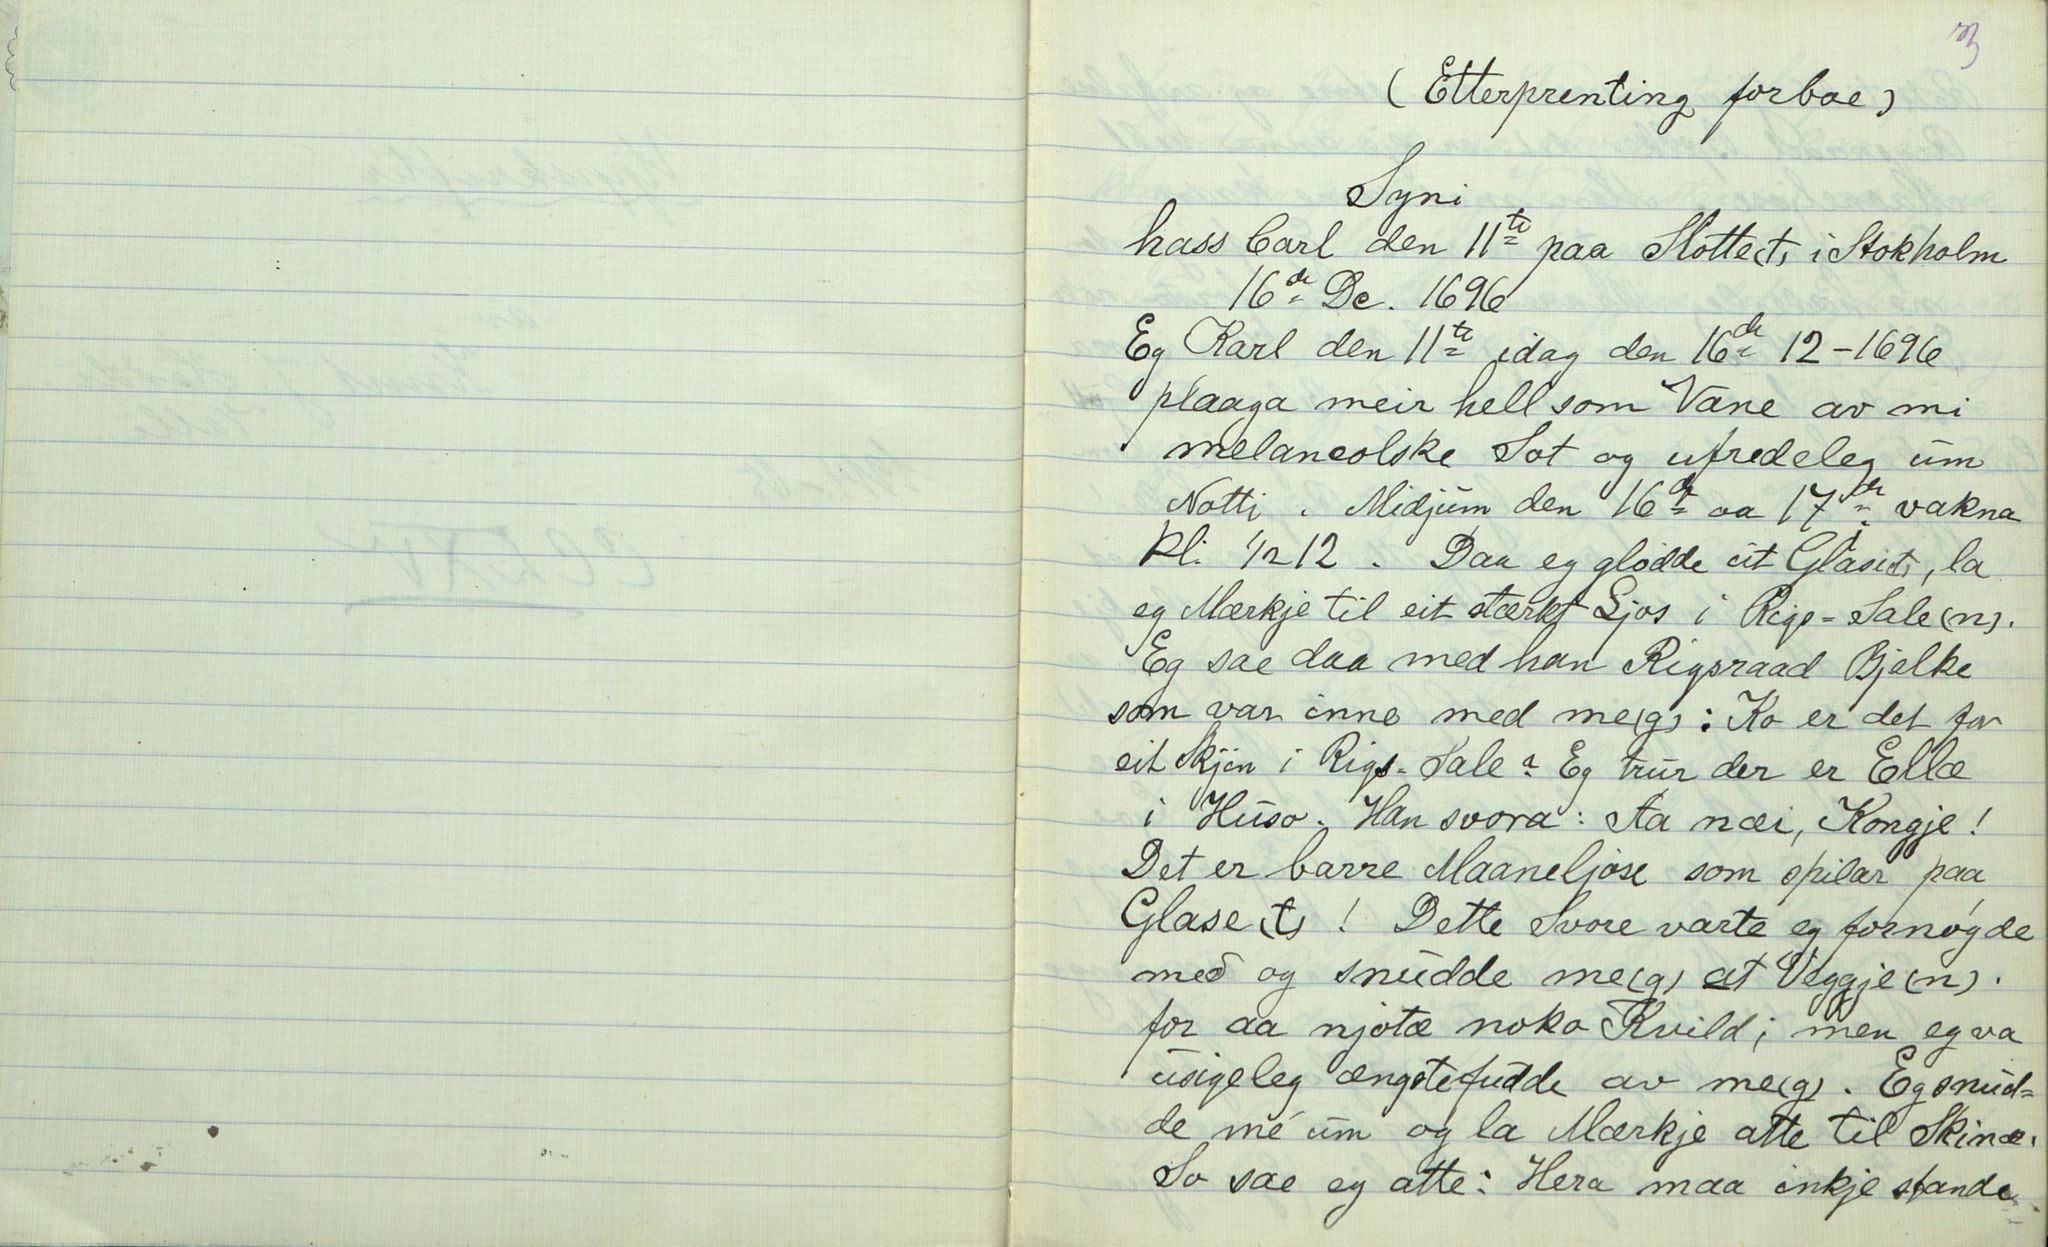 3
(Etterprenting forboe)
Syni
hass Carl den 11te paa Slotte(t) i Stokholm
16de De. 1696
Eg Karl den 11te idag den 16de 12-1696
plaaga meir hell som Vane av mi
melancolske Sot og ufredeleg um
Notti. Midjum den 16de aa 17de vakna
Kl. 1/2 12. Daa eg glodde ut Glase(t), la
eg Mærkje til eit stærkt Ljos i Rigs-Sale(n).
Eg sae daa med han Rigsraad Bjelke
som var inne med me(g): Ko er det for
eit Skjin i Rigs-Sale? Eg trur der er Ellæ
i Huso. Han svora: Aa næi, Kongje!
Det er barre Maaneljose som spilar paa
Glase(t)! Dette Svore varte eg fornøgde
med og snudde me(g) at Veggje(n).
for aa njotæ noko Kvild; men eg va
usigeleg ængstefudde av me(g). Eg snud=
de mé um og la Mærkje atte til Skinæ.
So sae eg atte: Hera maa inkje stande